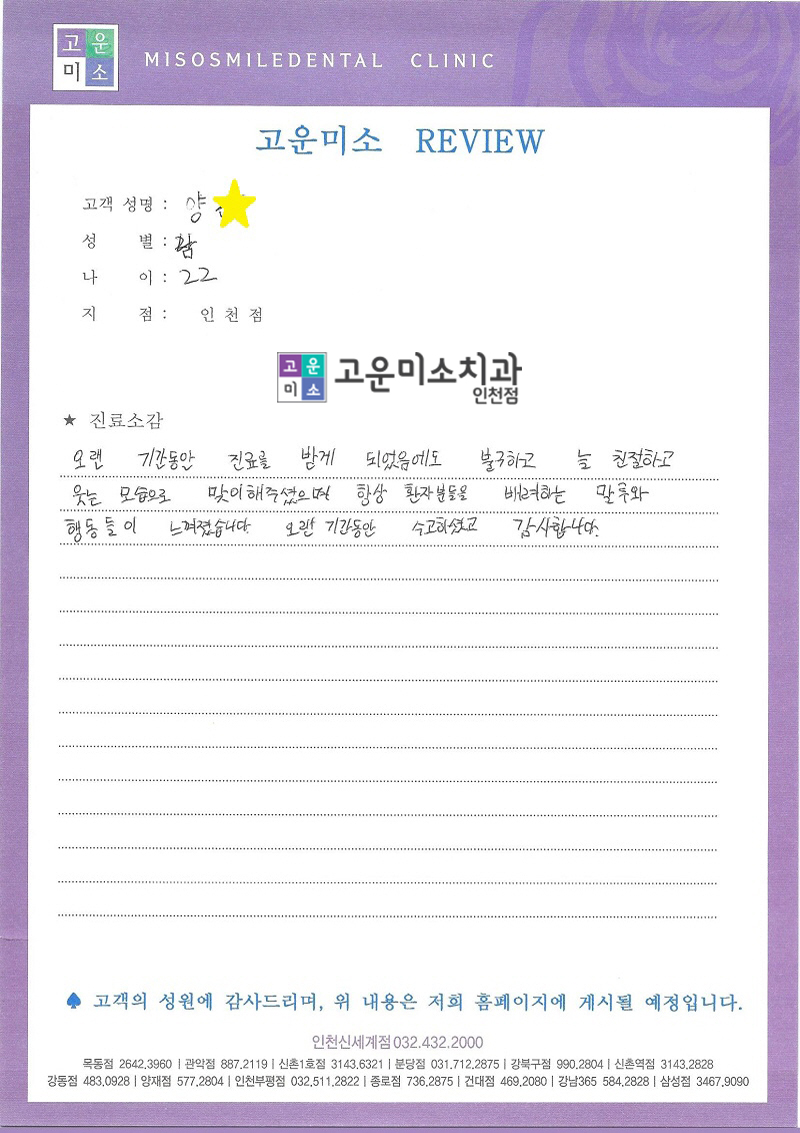 고운
미소
MISOSMILEDENTAL CLINIC
고운미소 REVIEW
고객 성명 : 양
성 별 :
나 이 : 22
지 점 : 인천점
고운
미소
고운미소치과
인천점
★ 진료소감
오랜 기간동안 진료를 받게 되었음에도 불구하고 늘 친절하고
웃는 모습으로 맞이해주셨으며 항상 환자분들을 배려하는 말투와
행동들이 느껴졌습니다. 오랜 기간동안 수고하셨고 감사합니다.
♠ 고객의 성원에 감사드리며, 위 내용은 저희 홈페이지에 게시될 예정입니다.
인천신세계점 032.432.2000
목동점 2642.3960 | 관악점 887.2119 | 신촌1호점 3143.6321 | 분당점 031.712.2875 | 강북구점 990.2804 | 신촌역점 3143.2828
강동점 483.0928 | 양재점 577.2804 | 인천부평점 032.511.2822 | 종로점 736.2875 | 건대점 469.2080 | 강남365 584.2828 | 삼성점 3467.9090